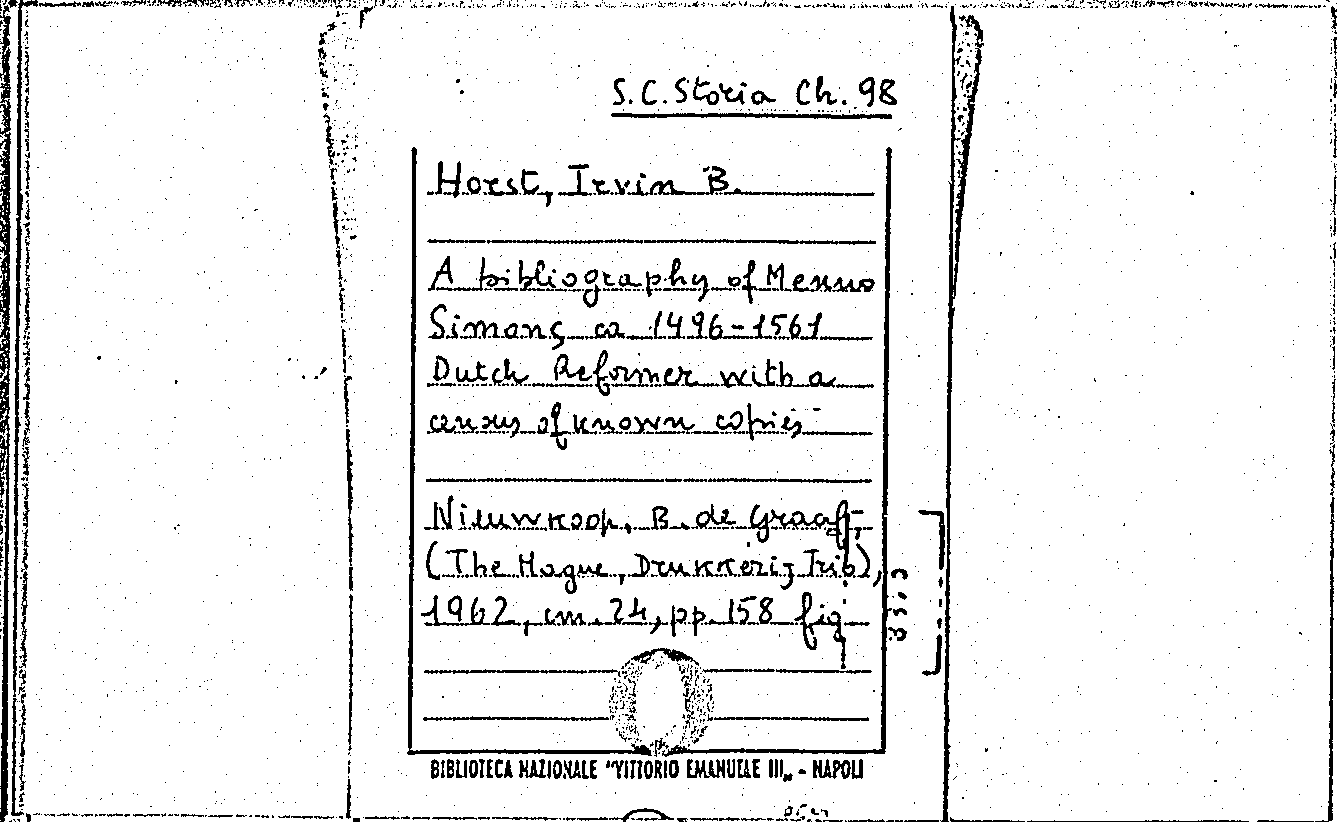 S.C. Storia Ch. 98
Horst, Irvin B.
A bibliography of Menno
Simons, ca 1496-1561
Dutch Reformer with a
census of known copies
Nieuwkoop, B. de Graaf,
(The Hague, Drukkerij Trio),
1962, cm. 24, pp. 158 fig
BIBLIOTECA NAZIONALE "VITTORIO EMANUELE III„ - NAPOLI